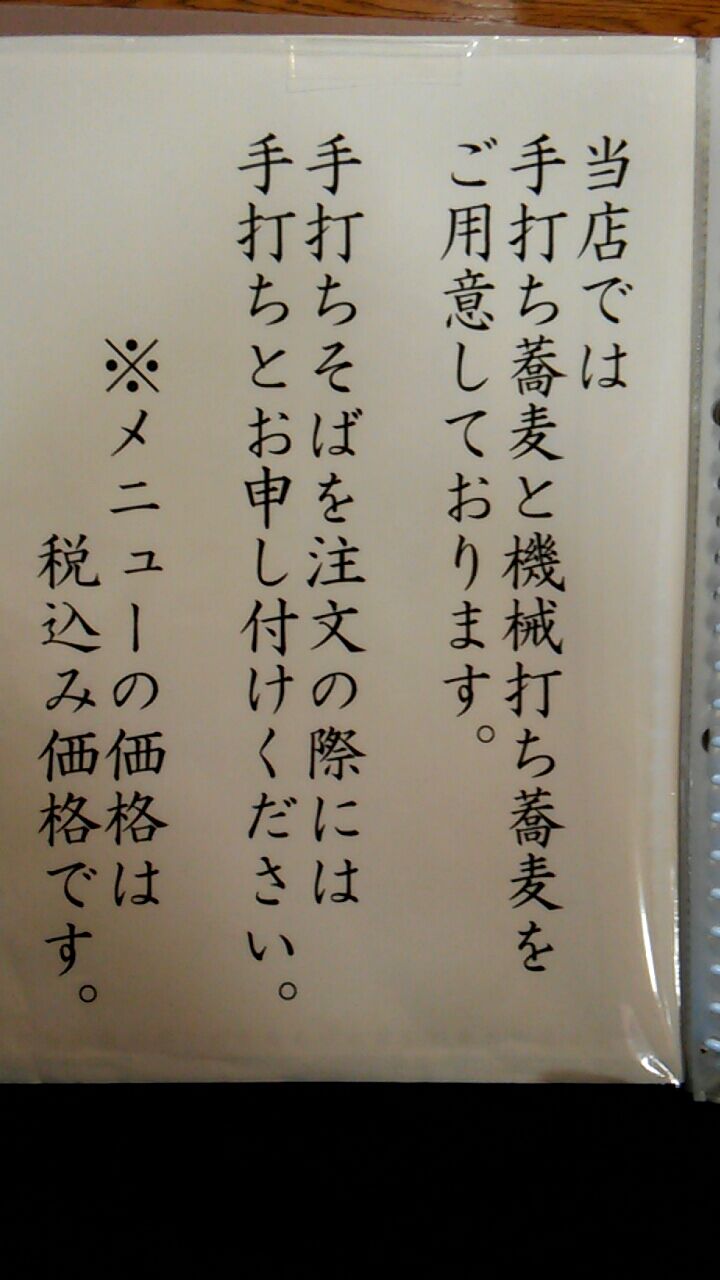 当店では
手打ち蕎麦と機械打ち蕎麦を
ご用意しております。
手打ちそばを注文の際には
手打ちとお申し付けください。
※メニューの価格は
税込み価格です。